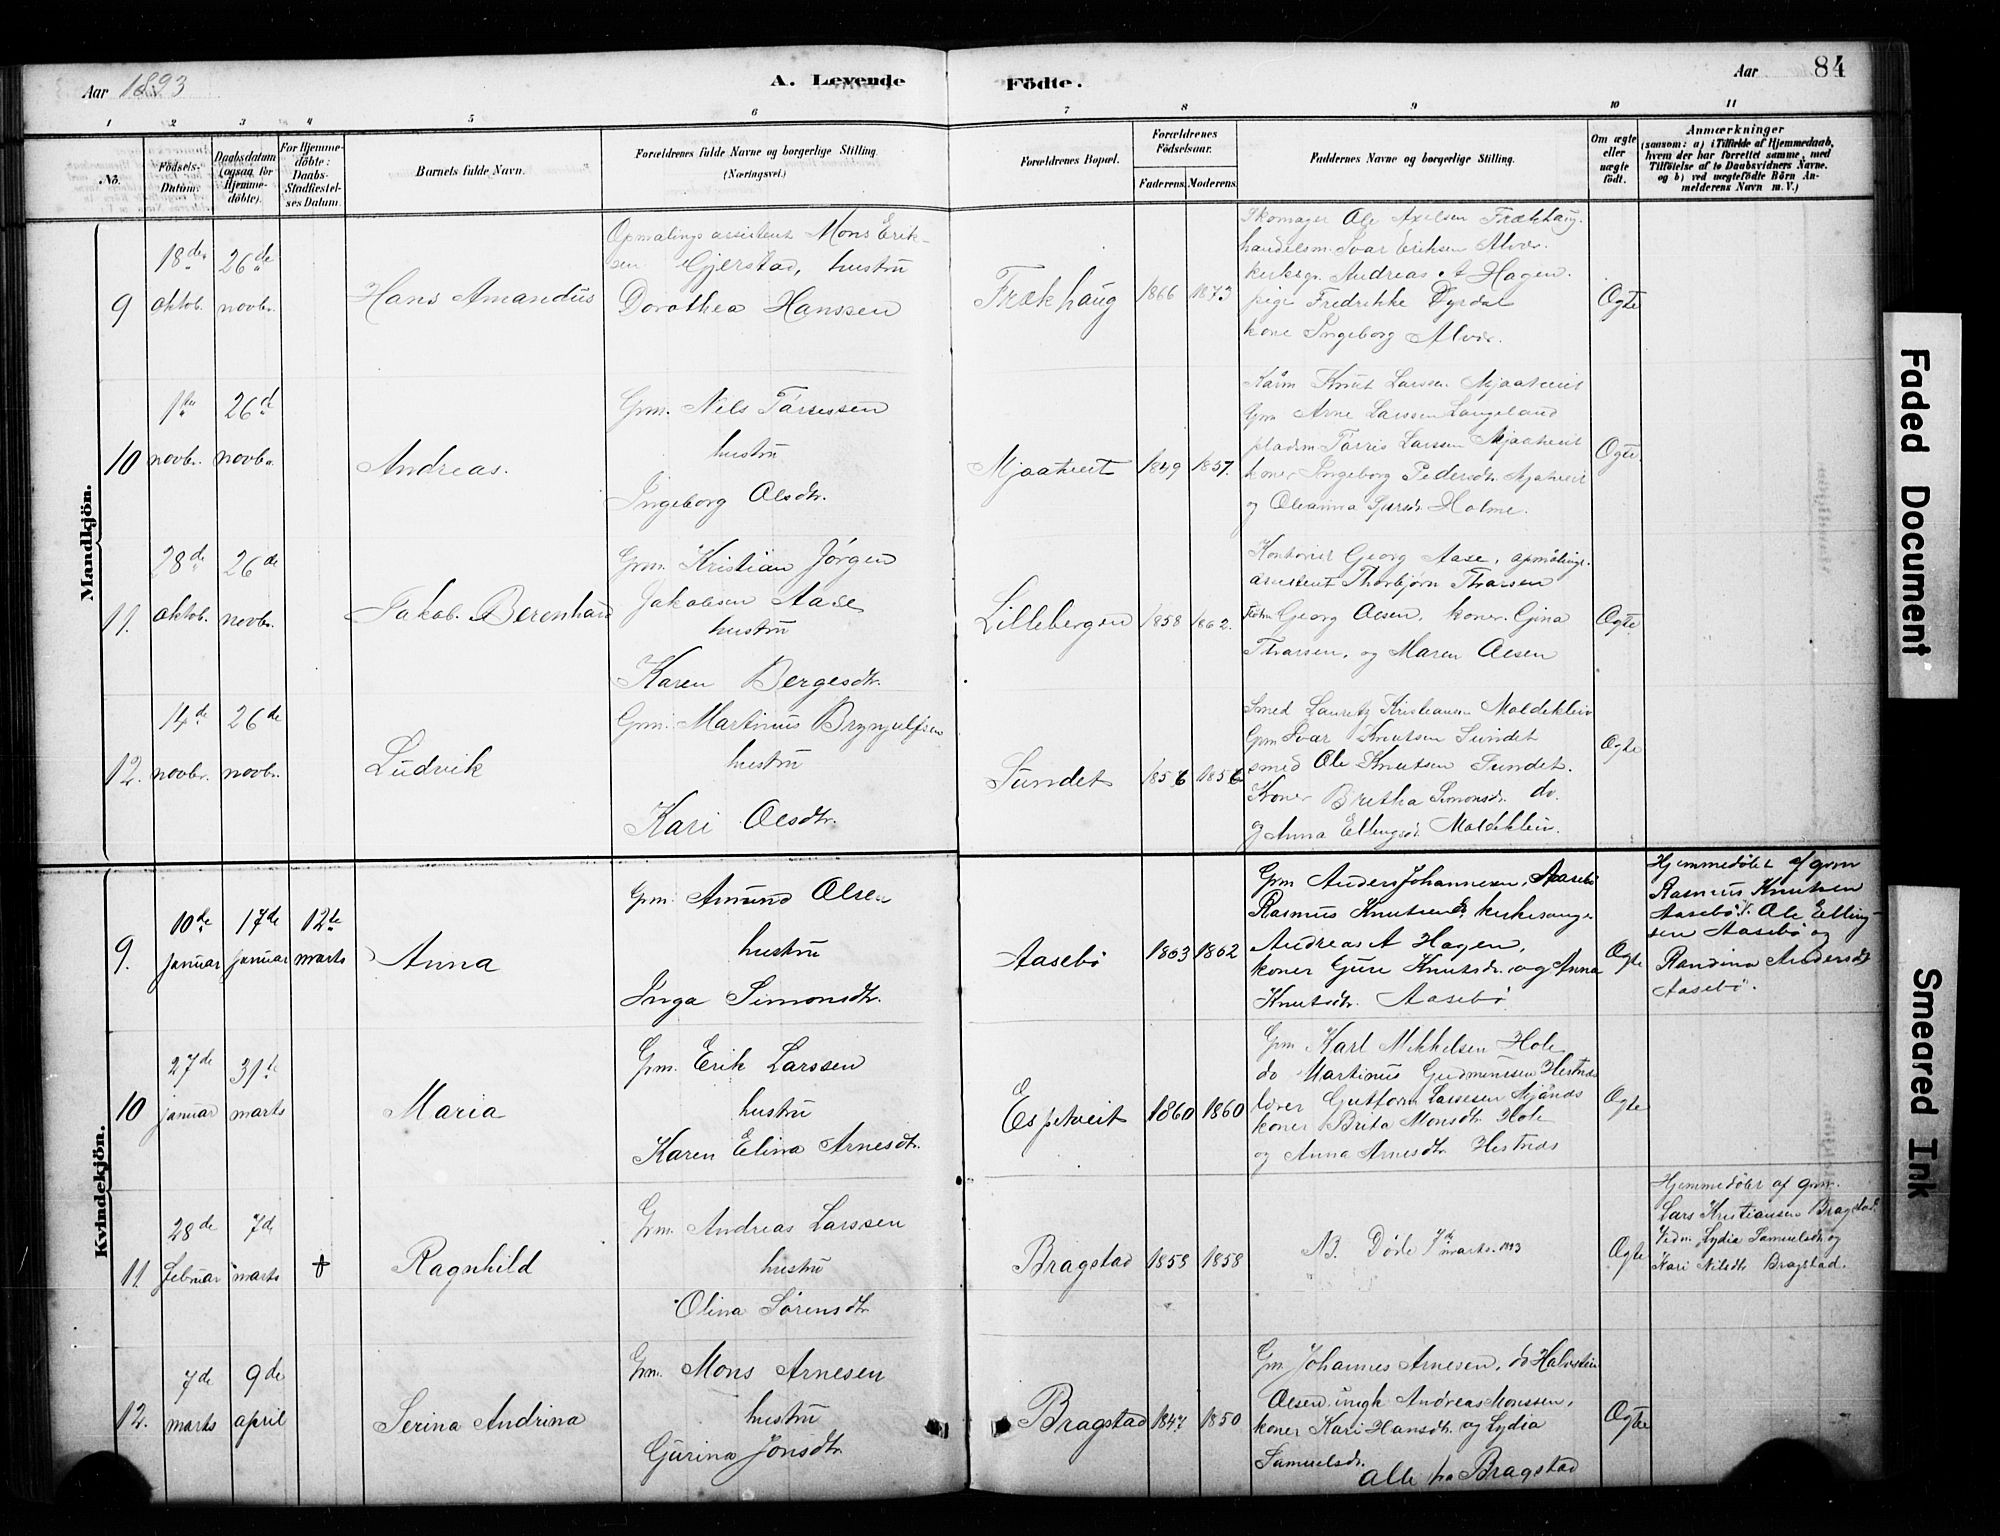 Aar 1893
A. Levende Födte.
Aar 84
1 2 3 4 5 6 7 8 9 10 11
No.
Födsels-Datum.
Daabsdatum (ogsaa for Hjemme-döbte).
For Hjemme-döbte: Daabs-Stadfæstel-ses Datum.
Barnets fulde Navn.
Forældrenes fulde Navne og borgerlige Stilling.
(Næringsvei.)
Forældrenes Bopæl.
Forældrenes Födselsaar.
Faderens. Moderens.
Faddernes Navne og borgerlige Stilling.
Om ægte eller uægte födt.
Anmærkninger
(saasom: a) i Tilfælde af Hjemmedaab,
hvem der har forrettet samme, med
Tilföielse af to Daabsvidners Navne.
og b) ved uægtefödte Börn An-
melderens Navn m. V.)
Mandkjön.
9
18de oktob.
26de novbr.
Hans Amandus
Opmalings assistent Mons Erik-
sen Gjerstad, hustru
Dorothea Hanssen
Frækhaug
1866 1873
Skomager Ole Axelsen Frækhaug.
handelsm. Ivar Eriksen Alver.
kirkesgr. Andreas A Hagen.
pige Fredrikke Dyrdal
kone Ingeborg Alver.
Ægte
10
1ste novbr.
26d novbr.
Andreas.
Gm. Nels
hustru
Ingeborg Olsdtr.
Mjaatveit
1849 1857.
Knut Larssen Mjaatveit
Gm Arne Larssen Langeland
pladsm Larssen Mjaatveit
koner Ingeborg Pedersdtr. Mjatveit
og Oleanna Holme.
Ægte
11.
28de oktob.
26de novbr.
Jakob. Berenhard
Gm. Kristian Jørgen
Jakobsen Aase
hustru
Karen Bergesdtr.
Lillebergen
1858 1862.
Kontorist Georg Aase, opmålings-
assistent Thorbjørn Tharsen
Georg Olsen, koner Gina
Tharsen, og Maren Olsen
Ægte
12.
14de novbr.
26de novbr.
Ludvik
Gm. Martinus Brynjulfsen
hustru
Kari Olsdtr.
Sundet
1856 1856
Smed Lauritz Kristiansen Moldeklev
Gm Ivar Knutsen Sundet
smed Ole Knutsen Sundet.
Koner Bretha Simonsdtr. do.
og Anna Ellingsdr. Moldeklev.
Ægte
Kvindekjön.
9.
10de januar
17de januar
12te marts
Anna
Gm. Amund Olsen
hustru
Inga Simonsdtr.
Aasebø
1863 1862
Gm Anders Johannesen, Aasebø
Rasmus Knutsen, kirkesanger
Andreas A Hagen,
koner Guri Knutsdr. og Anna
Knutsdr. Aasebø
Ægte
Hjemmedøbt af gm
Rasmus Knutsen
Aasebø. Ole Elling-
sen Aasebø og
Randina Andersdt
Aasebø.
10
27de januar
31te marts
Maria
Gm. Erik Larssen
hustru
Karen Elina Arnesdtr.
Espetveit
1860 1860
Gm Karl Mikkelsen Hole
do Martinus Gudmunssen Hestnæs
lærer Guttorm Larssen
koner Brita Monsdtr. Hole
og Anna Arnesdtr Hestnæs
Ægte
11.
28de februar
7d marts
+
Ragnhild
Gm. Andreas Larssen
hustru
Olina Sørensdtr
Bragstad
1859 1858
NB. Døde 7de marts. 1893
Ægte
Hjemmedøbt af gm.
Lars Kristiansen Bragstad.
Vidn. Lydia Samuelsdtr og
Kari Nilsdtr Bragstad.
12.
7de marts
9de april
Serina Andrina
Gm. Mons Arnesen
hustru
Gurina Jonsdtr
Bragstad
1847 1850
Gm Johannes Arnesen, do Halvstein
Olsen, ungk Andreas Monssen,
koner Kari Hansdtr. og Lydia
Samuelsdr.
alle fra Bragstad
Ægte
Faded Document
Smeared Ink